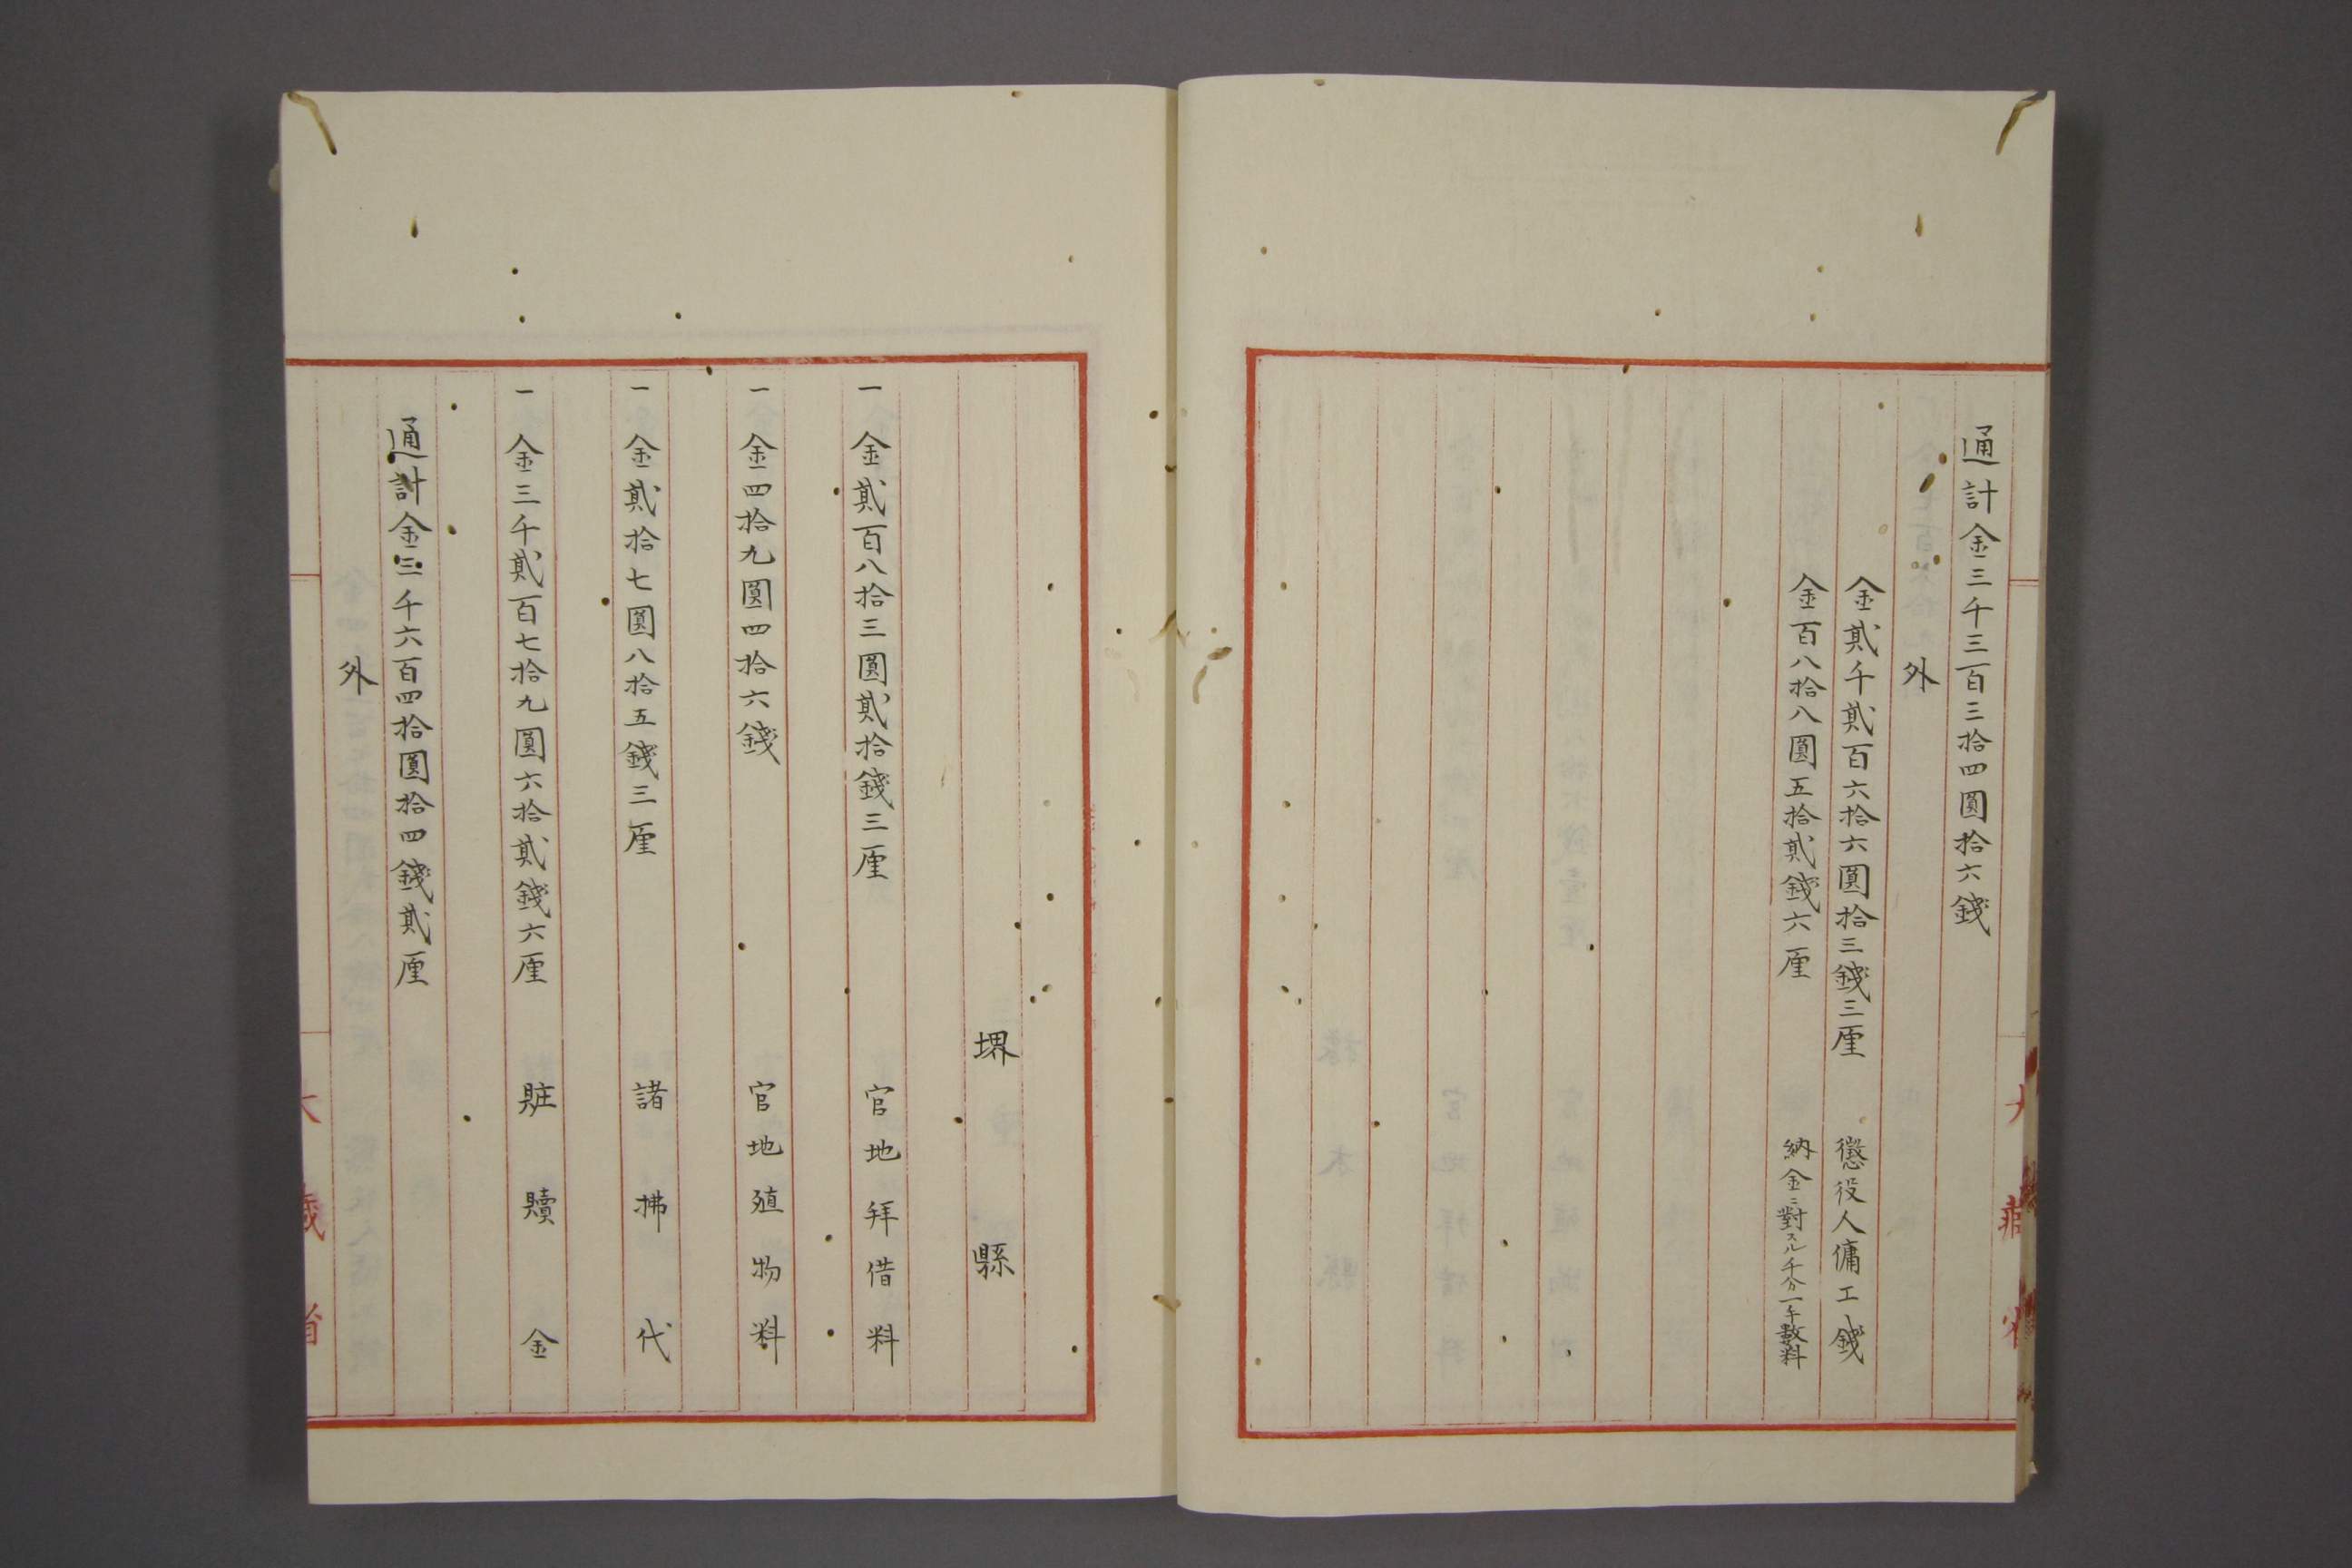 通計金三千三百三拾四圓拾六錢
外
金貳千貳百六拾六圓拾三錢三厘 懲役人傭工錢
金百八拾八圓五拾貳錢六厘 納金ニ對スル千分一手數料
堺縣
一 金貳百八拾三圓貳拾錢三厘 官地拜借料
一 金四拾九圓四拾六錢 官地殖物料
一 金貳拾七圓八拾五錢三厘 諸拂代
一 金三千貳百七拾九圓六拾貳錢六厘 賍贖金
通計金三千六百四拾圓拾四錢貳厘
外
大藏省